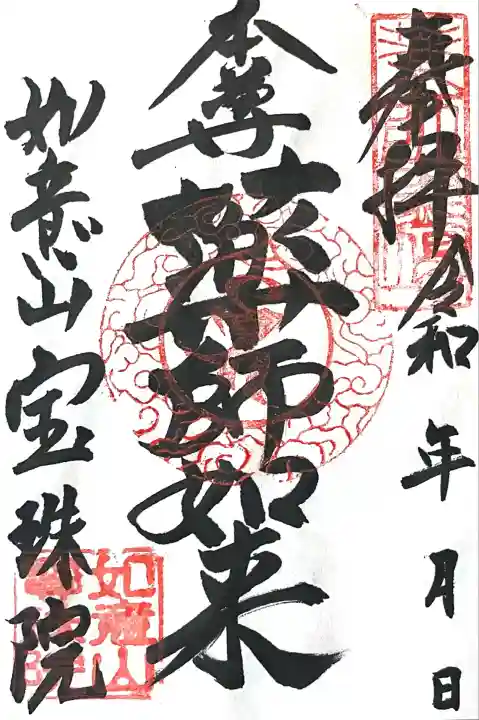 奉拝 令和 年 月 日
本尊 薬師如来
如意山 宝珠院
如意山